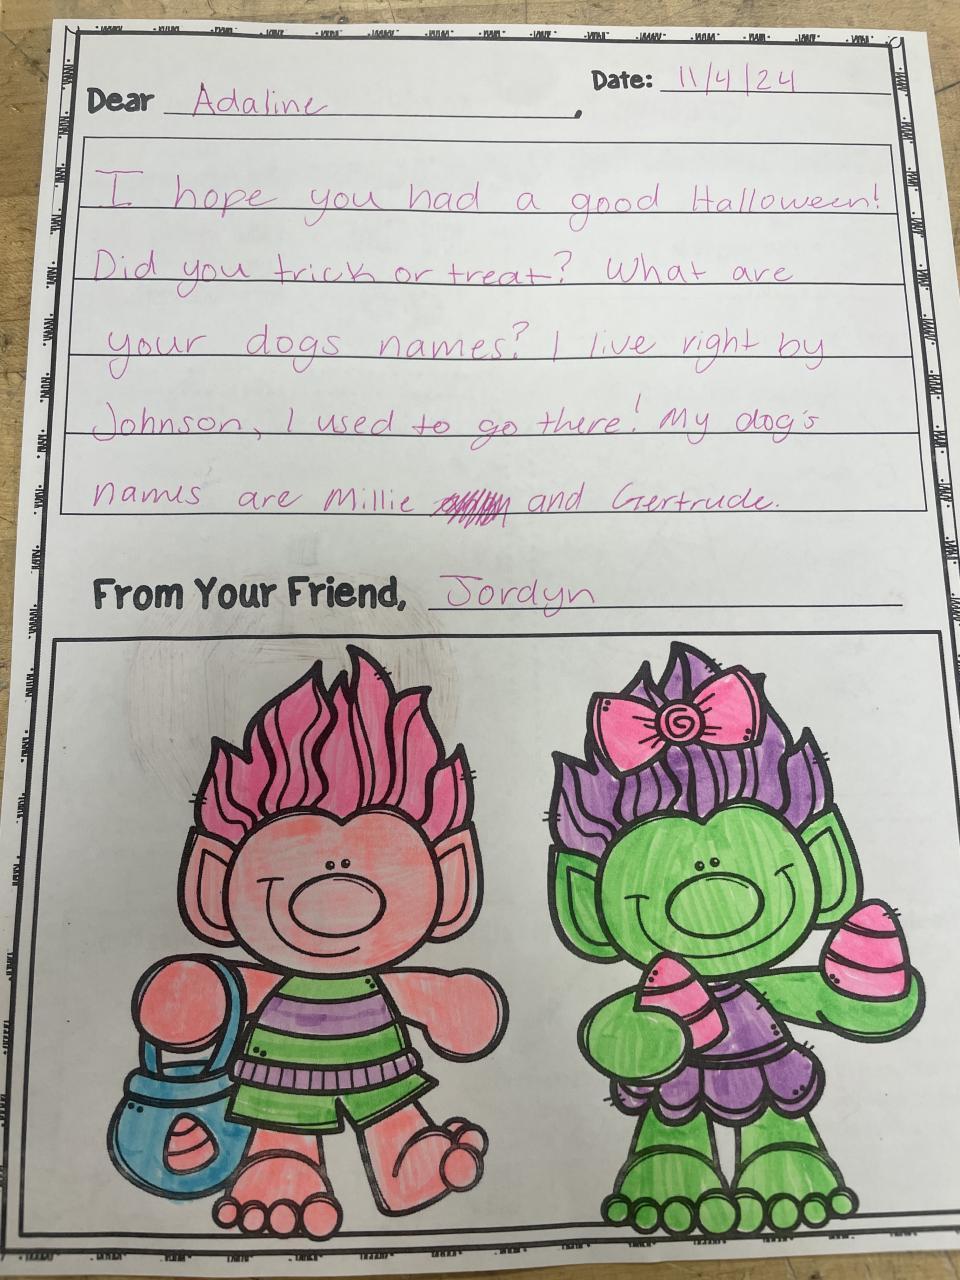 Date: 11/4/24
Dear Adaline,
I hope you had a good Halloween!
Did you trick or treat? What are
your dogs names? I live right by
Johnson, I used to go there! My dog's
names are Millie and Gertrude.
From Your Friend, Jordyn